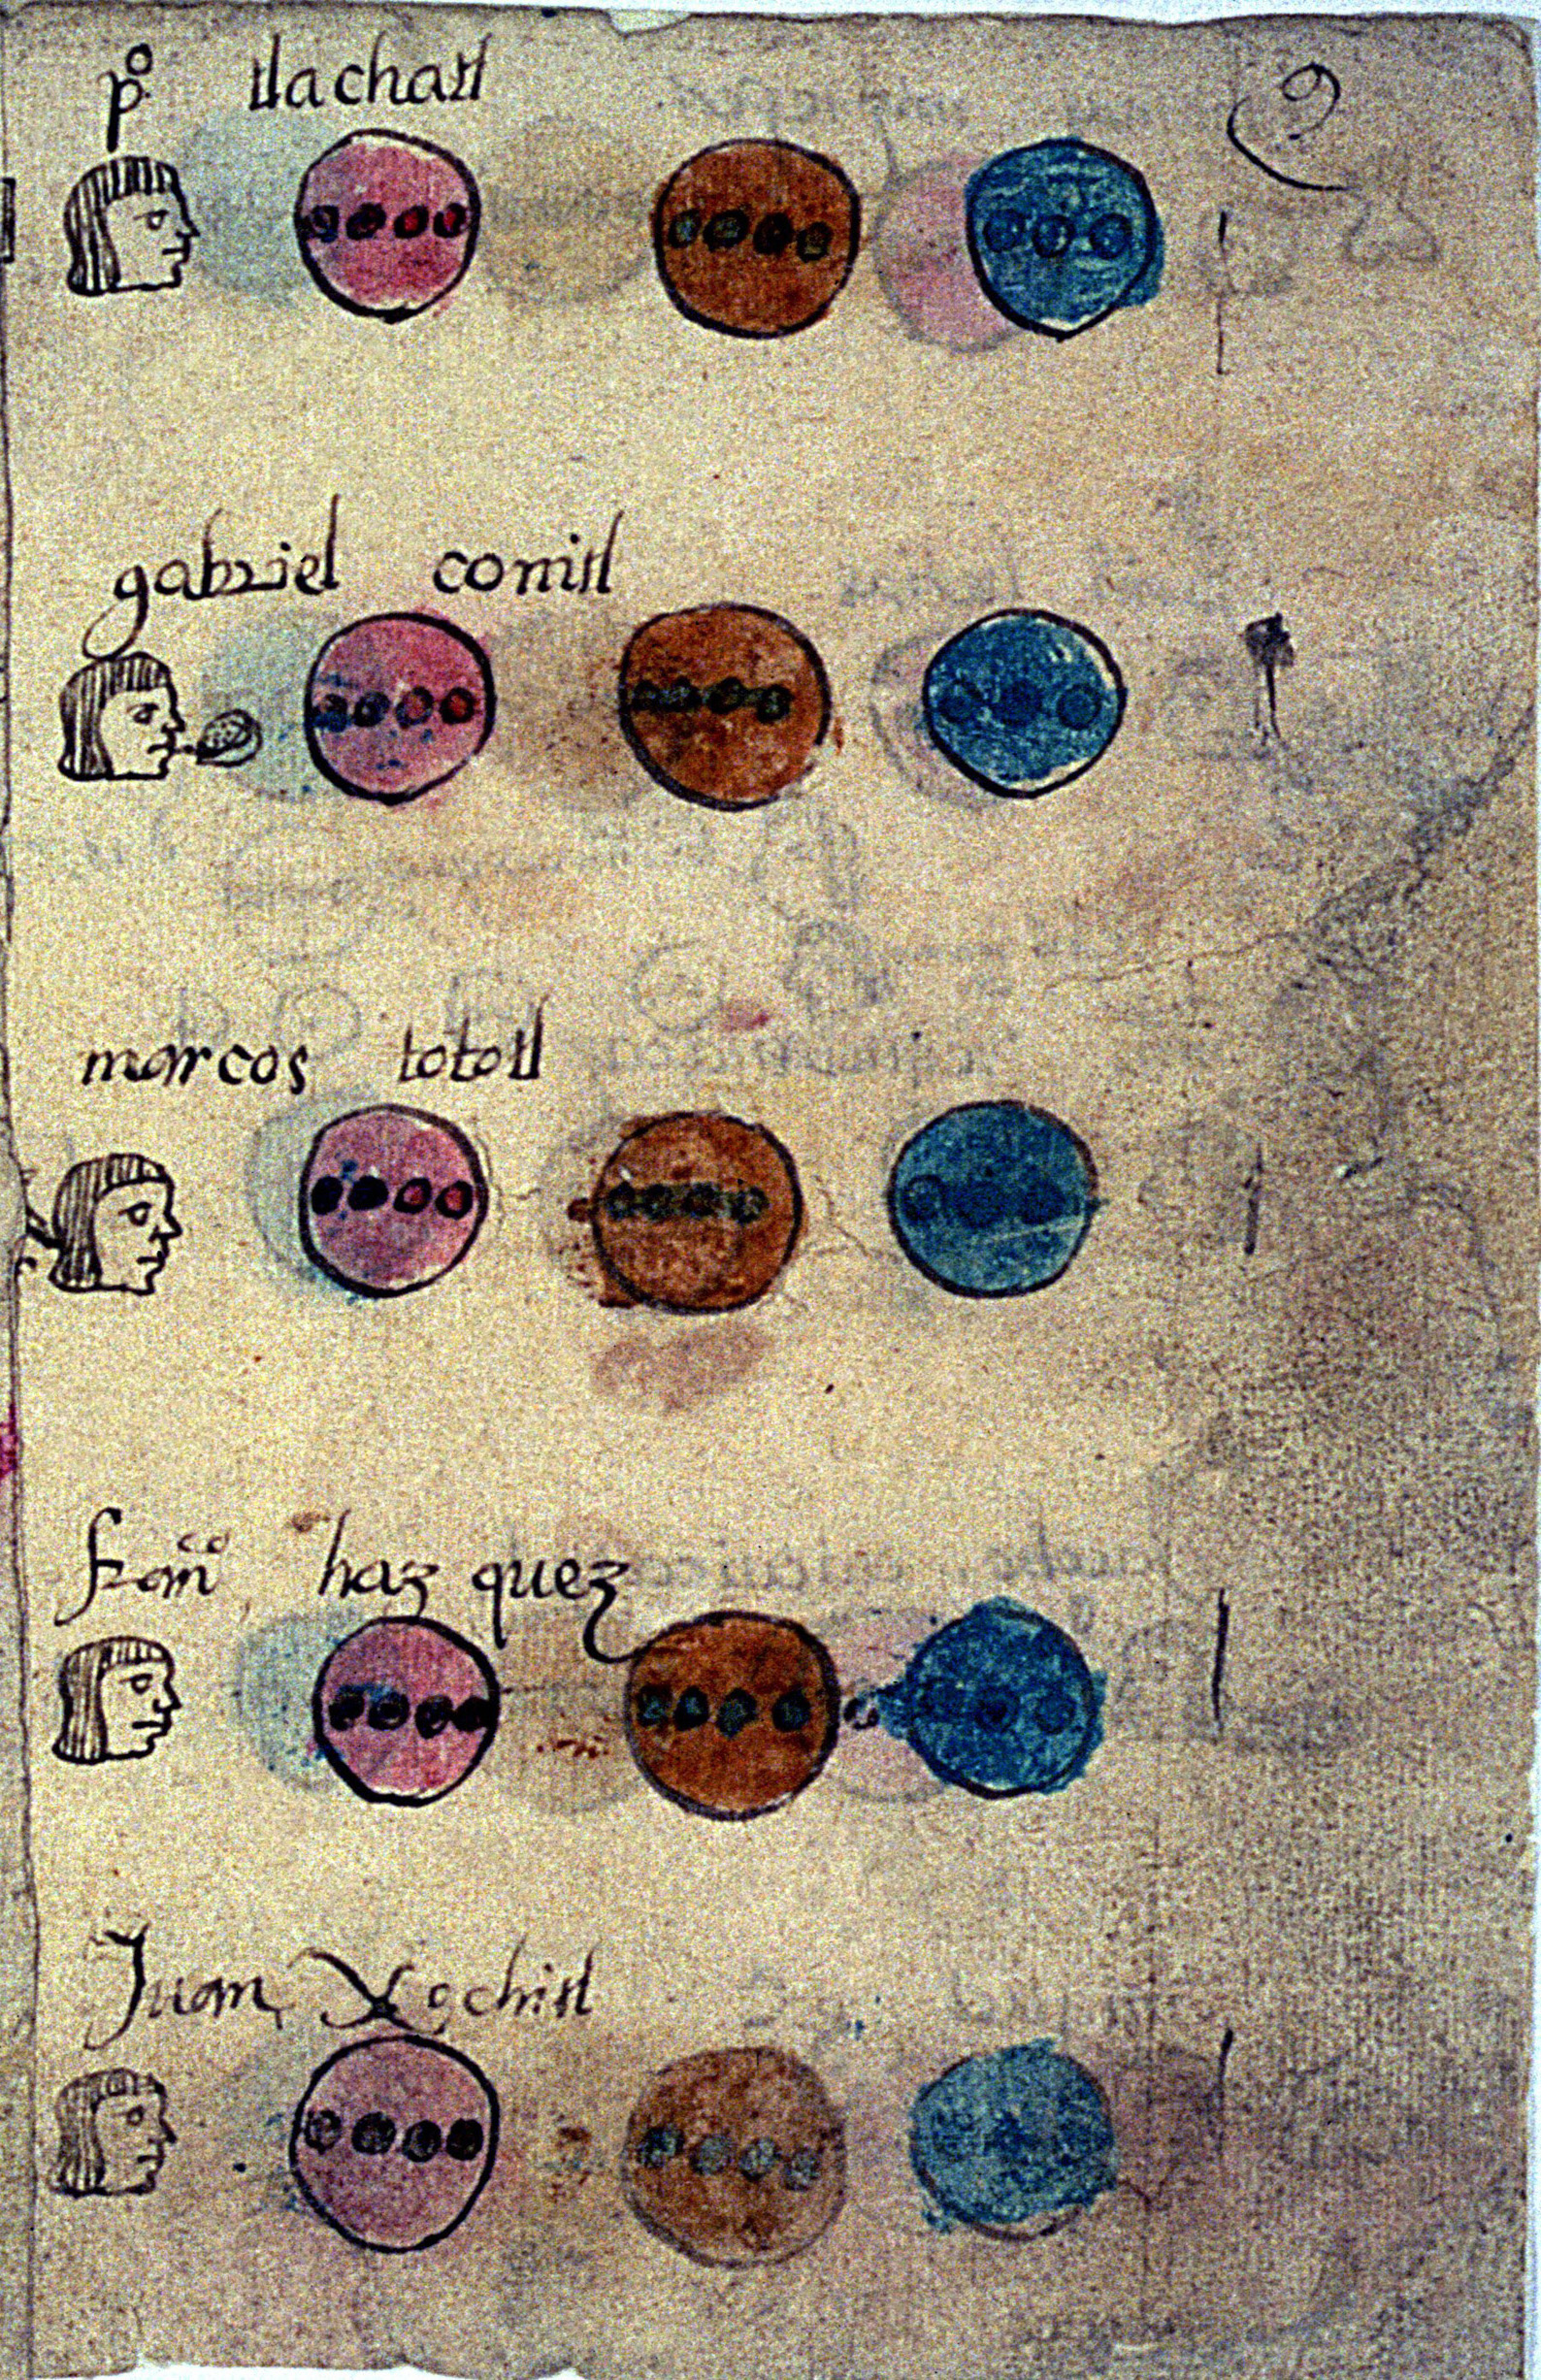 po tlachatl
9
gabriel comitl
marcos tototl
franco hazquez
Juan Xochitl